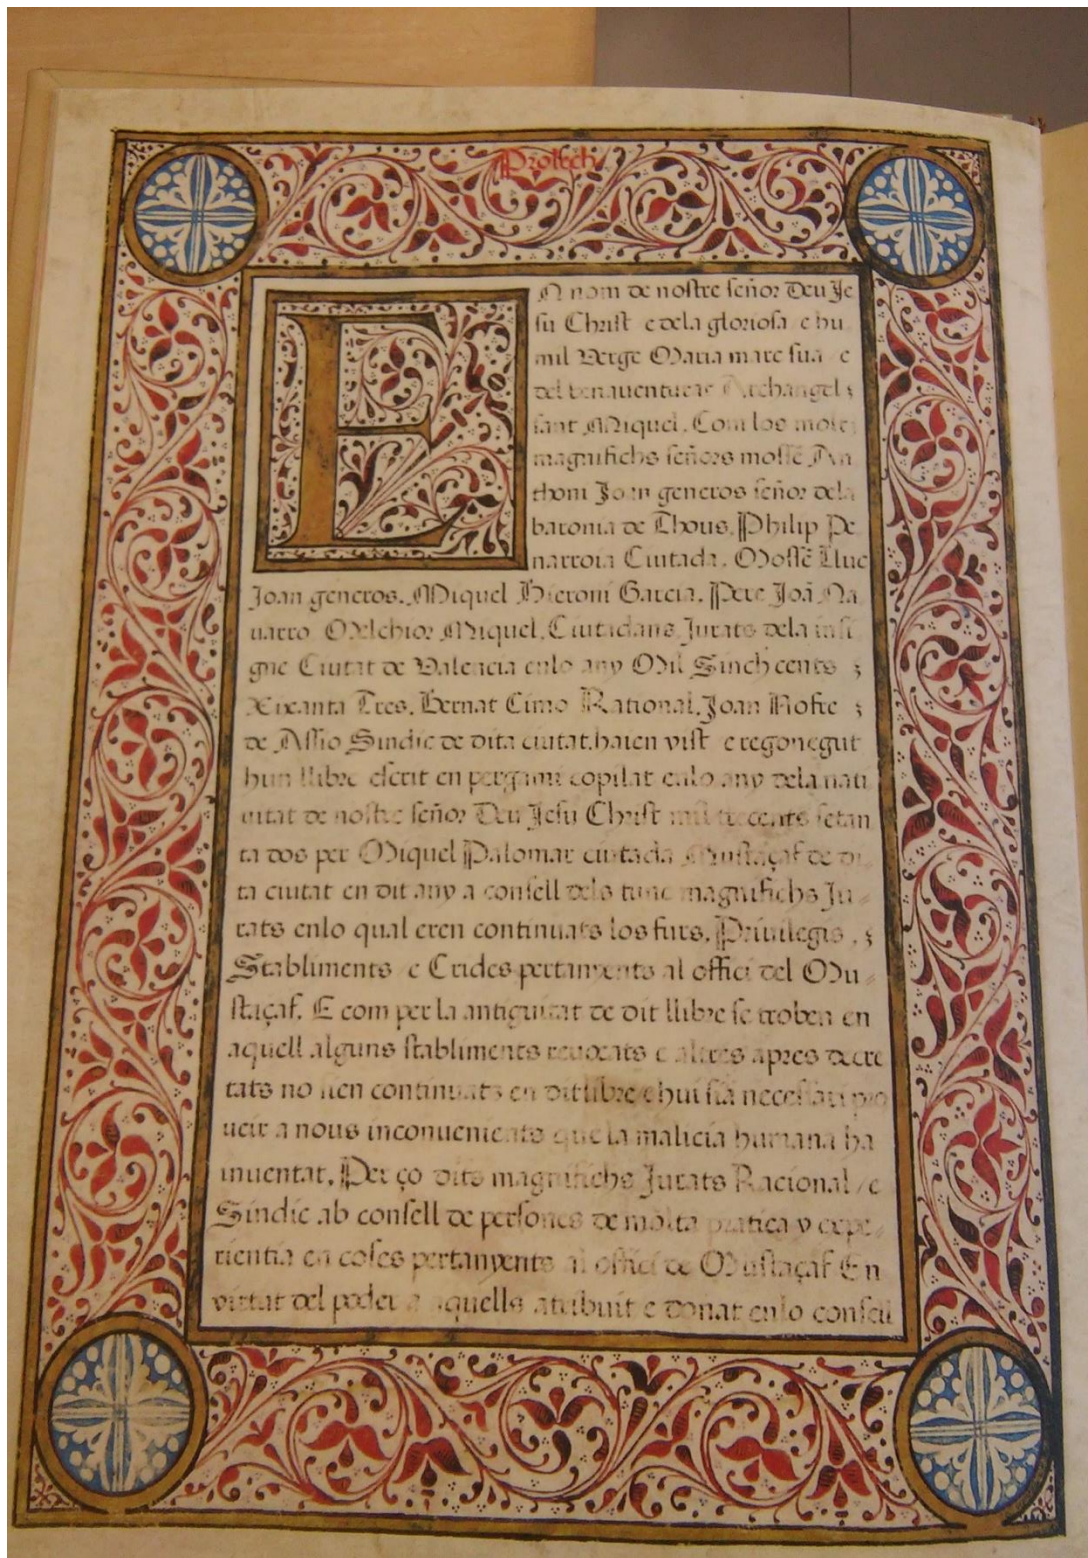 Prolech
EN nom de nostre señor Deu Je
su Christ e dela gloriosa e hu
mil Verge Maria mare sua e
del benauenturat Archangel
sant Miquel. Com los molt
magnifichs señors mosse An
thoni Joan generos señor dela
baronia de Thous. Philip Pe
narroia Ciutada. Mosse Lluc
Joan generos. Miquel Hieroni Garcia. Pere Joã Na
uarro Melchior Miquel. Ciutadans Jurats dela insi
gne Ciutat de Valencia enlo any Mil Sinch cents
Xixanta Tres. Bernat Cimo Rational. Joan Nofre
de Assio Sindic de dita ciutat. haien vist e regonegut
hun llibre escrit en pergami copilat enlo any dela nati
uitat de nostre señor Deu Jesu Christ mil trecents setan
ta dos per Miquel Palomar ciutada Mustaçaf de di
ta ciutat en dit any a consell dels tunc magnifichs Ju-
rats enlo qual eren continuats los furs. Priuilegis. ȝ
Stabliments e Crides pertanyents al offici del Mu-
staçaf. E com per la antiguitat de dit llibre se troben en
aquell alguns stabliments reuocats e altres apres decre
tats no sien continuats en dit libre e hui sia necessari pro
ueir a nous inconuenients que la malicia humana ha
inuentat. Per ço dits magnifichs Jurats Racional / e
Sindic ab consell de persones de molta pratica y expe-
rientia en coses pertanyents al offici de Mustaçaf En
virtat del poder a aquells atribuit e donat enlo consell